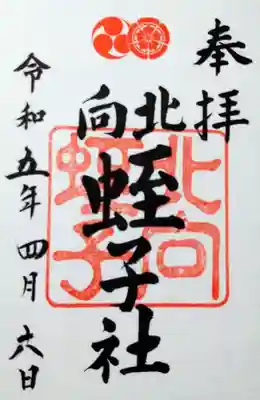 奉拝
北向
蛭子社
北向
蛭子
令和五年四月六日